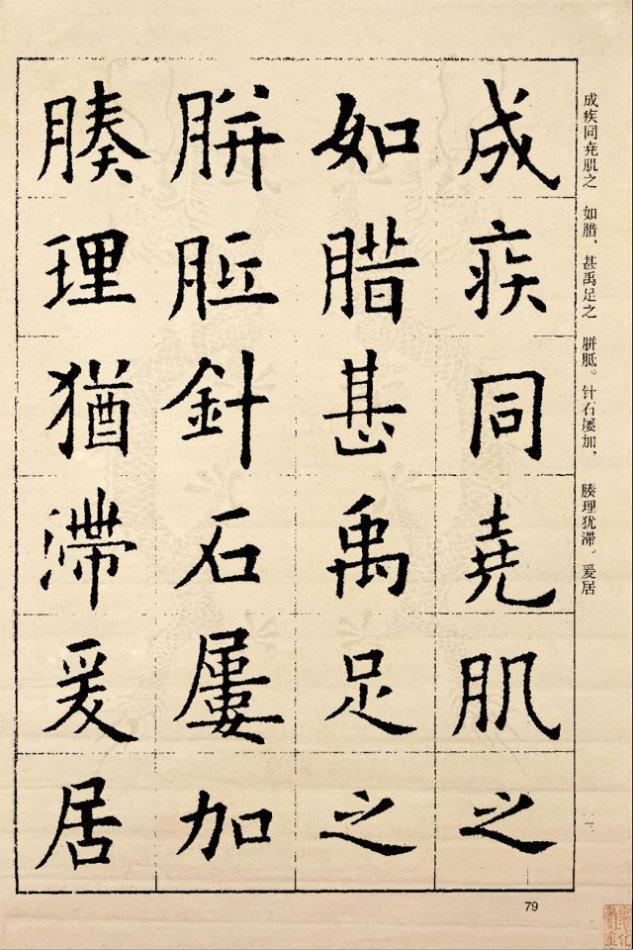 成疾同堯肌之
如腊甚禹足之
胼胝針石屢加
腠理猶滯爰居
成疾同尧肌之 如腊、甚禹足之 胼胝。针石屡加、 腠理犹滞。爰居
79